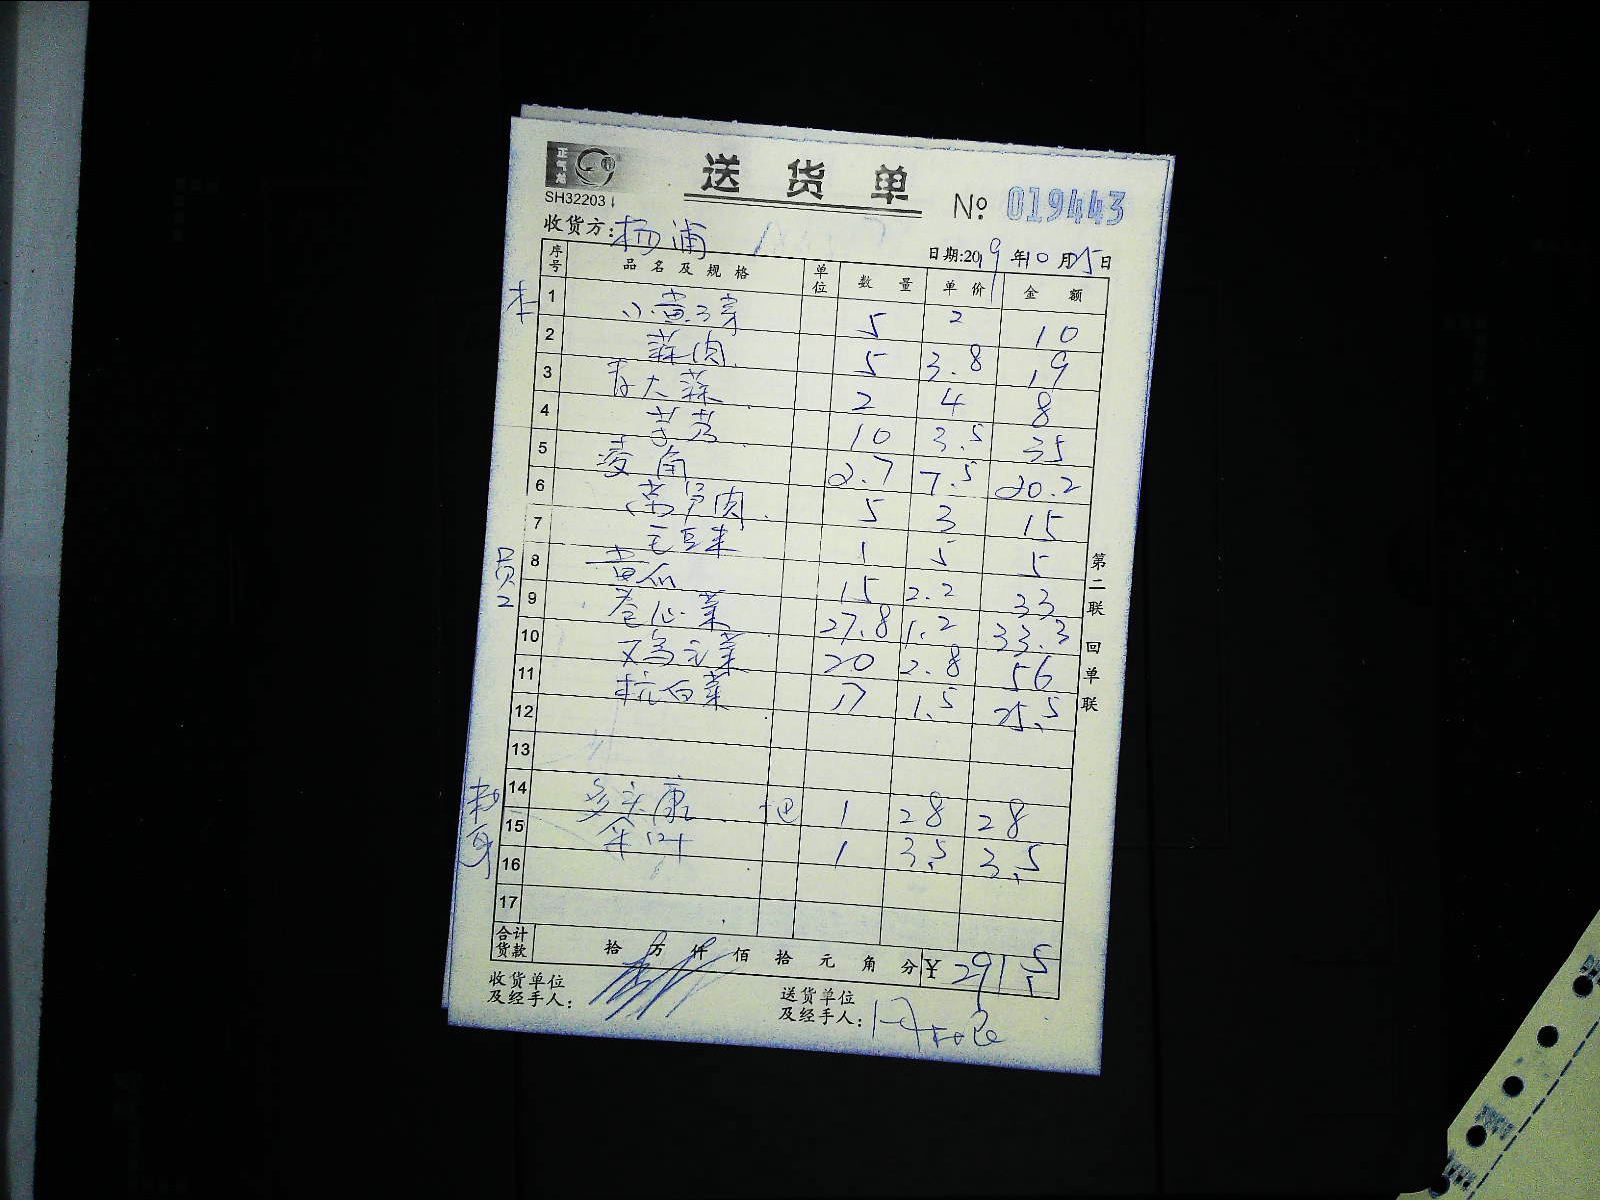 正气龙
送货单
SH32203
№ 019443
收货方：杨浦
日期:2019年10月25日
序号 品名及规格 单位 数量 单价 金额
1 小黄豆芽 5 2 10
2 蒜肉 5 3.8 19
3 青大蒜 2 4 8
4 茡荠 10 3.5 35
5 菱角 2.7 7.5 20.2
6 莴笋肉 5 3 15
7 毛豆米 1 5 5
8 黄瓜 15 2.2 33
9 卷心菜 27.8 1.2 33.3
10 鸡毛菜 20 2.8 56
11 杭白菜 17 1.5 25.5
12
13
14 康 1 28 28
15 1 3.5 3.5
16
17
合计货款 拾 万 仟 佰 拾 元 角 分 ¥ 291.5
收货单位及经手人：
送货单位及经手人：
第二联 回单联
员工